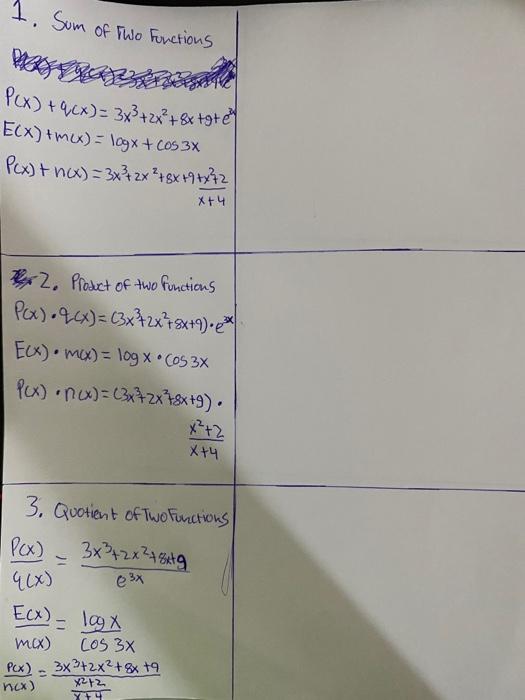 1. Sum of Two Functions
P(x) + q(x) = 3x³+2x²+8x+9+e³ˣ
E(x)+m(x) = logx + cos3x
P(x)+n(x) = 3x³+2x²+8x+9+x²+2
x+4
2. Product of two functions
P(x)•q(x)=(3x³+2x²+8x+9)•e³ˣ
E(x)•m(x) = log x • cos3x
P(x)•n(x)=(3x³+2x²+8x+9)•
x²+2
x+4
3. Quotient of Two Functions
P(x) = 3x³+2x²+8x+9
q(x) e³ˣ
E(x) = logx
m(x) cos 3x
P(x) = 3x³+2x²+8x+9
n(x) x²+2
x+4